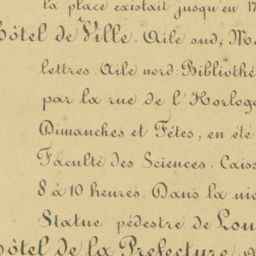 la place existait jusqu'en 17
hôtel de Ville. Aile sud, Mu
lettres. Aile nord: Bibliothè
par la rue de l'Horloge
Dimanches et Fêtes, en été
Faculté des Sciences. Caiss
8 à 10 heures. Dans la nic
Statue pédestre de Lou
hôtel de la Préfecture